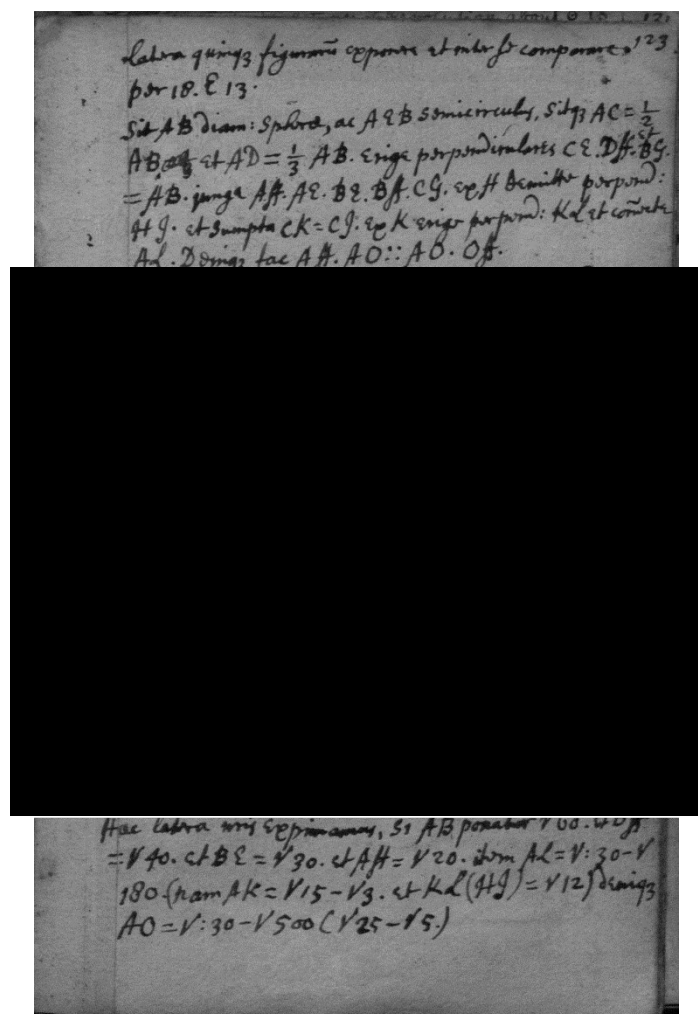 123
latera quinqz figurarū exponere et inter se comparare.
per 18. E 13.
Sit AB diam: Sphæræ, ac AEB semicirculus, Sitqz AC = 1/2
AB, et AD = 1/3 AB. Erige perpendiculares CE. DH. et BG.
= AB. junge AH. AE. BE. BH. CG. ex H Demitte perpend:
HJ. et Sumpta CK = CJ. Ex K Erige perpend: KL et con̄ecte
AL. Deinqz fac AH. AO :: AO. OH.
Hac latera nris Exprimamus, Si AB ponatur √60. et BH
= √40. et BE = √30. et AH = √20. item AL = √: 30 - √
180 (nam AK = √15 - √3. et KL (HJ) = √12) Deniqz
AO = √: 30 - √500 (√25 - √5.)